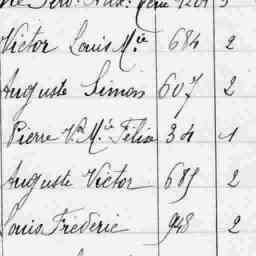 Victor Louis M.ie 684 2
Auguste Simon 607 2
Pierre V.or M.ie Félix 34 1
Auguste Victor 685 2
Louis Frédéric 948 2